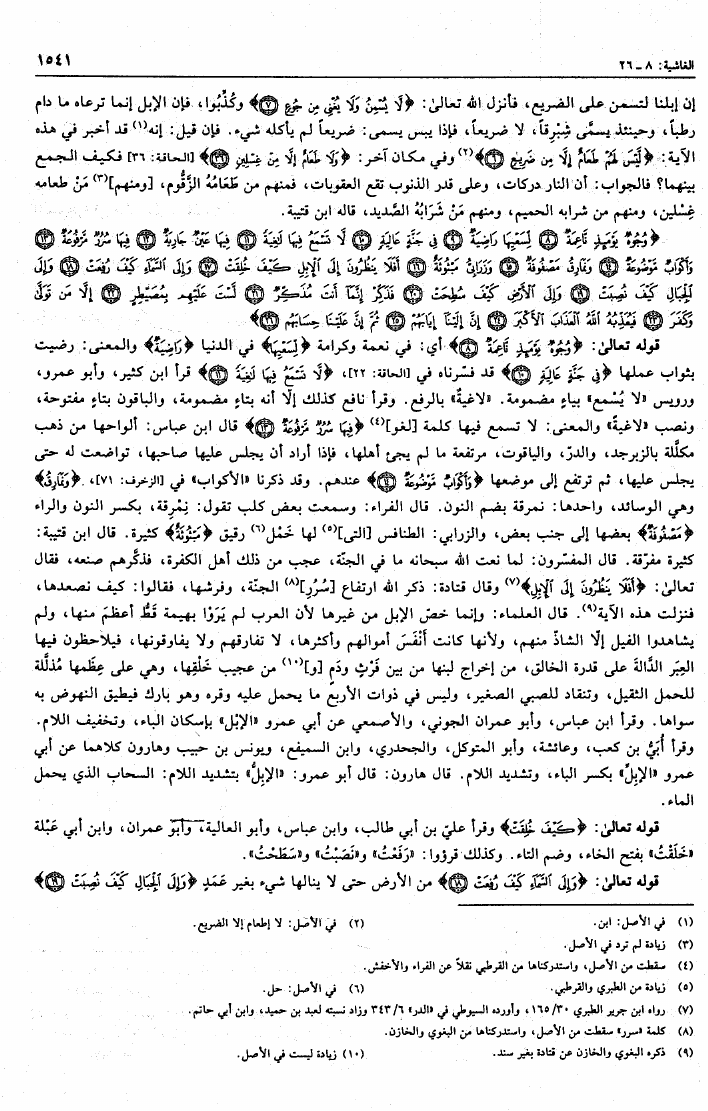 الغاشية: ٨ ـ ٢٦
١٥٤١
إن إبلنا لتسمن على الضريع، فأنزل الله تعالىٰ: ﴿لَّا يُسْمِنُ وَلَا يُغْنِى مِن جُوعٍ ﴿٧﴾﴾ وكُذِّبُوا، فإن الإبل إنما ترعاه ما دام
رطباً، وحينئذ يسمَّى شِبْرِقاً، لا ضريعاً، فإذا يبس يسمى: ضريعاً لم يأكله شيء. فإن قيل: إنه(١) قد أخبر في هذه
الآية: ﴿لَّيْسَ لَهُمْ طَعَامٌ إِلَّا مِن ضَرِيعٍ ﴿٦﴾﴾(٢) وفي مكان آخر: ﴿وَلَا طَعَامٌ إِلَّا مِنْ غِسْلِينٍ ﴿٣٦﴾﴾ [الحاقة: ٣٦] فكيف الجمع
بينهما؟ فالجواب: أن النار دركات، وعلى قدر الذنوب تقع العقوبات، فمنهم من طَعَامُهُ الزَّقُّوم، [ومنهم](٣) مَنْ طعامه
غِسْلين، ومنهم من شرابه الحميم، ومنهم مَنْ شَرَابُهُ الصَّديد، قاله ابن قتيبة.
﴿وُجُوهٌ يَوْمَئِذٍ نَّاعِمَةٌ ﴿٨﴾ لِّسَعْيِهَا رَاضِيَةٌ ﴿٩﴾ فِى جَنَّةٍ عَالِيَةٍ ﴿١٠﴾ لَّا تَسْمَعُ فِيهَا لَٰغِيَةً ﴿١١﴾ فِيهَا عَيْنٌ جَارِيَةٌ ﴿١٢﴾ فِيهَا سُرُرٌ مَّرْفُوعَةٌ ﴿١٣﴾
وَأَكْوَابٌ مَّوْضُوعَةٌ ﴿١٤﴾ وَنَمَارِقُ مَصْفُوفَةٌ ﴿١٥﴾ وَزَرَابِىُّ مَبْثُوثَةٌ ﴿١٦﴾ أَفَلَا يَنظُرُونَ إِلَى الْإِبِلِ كَيْفَ خُلِقَتْ ﴿١٧﴾ وَإِلَى السَّمَآءِ كَيْفَ رُفِعَتْ ﴿١٨﴾ وَإِلَى
الْجِبَالِ كَيْفَ نُصِبَتْ ﴿١٩﴾ وَإِلَى الْأَرْضِ كَيْفَ سُطِحَتْ ﴿٢٠﴾ فَذَكِّرْ إِنَّمَآ أَنتَ مُذَكِّرٌ ﴿٢١﴾ لَّسْتَ عَلَيْهِم بِمُصَيْطِرٍ ﴿٢٢﴾ إِلَّا مَن تَوَلَّىٰ
وَكَفَرَ ﴿٢٣﴾ فَيُعَذِّبُهُ اللَّهُ الْعَذَابَ الْأَكْبَرَ ﴿٢٤﴾ إِنَّ إِلَيْنَآ إِيَابَهُمْ ﴿٢٥﴾ ثُمَّ إِنَّ عَلَيْنَا حِسَابَهُم ﴿٢٦﴾﴾
قوله تعالىٰ: ﴿وُجُوهٌ يَوْمَئِذٍ نَّاعِمَةٌ ﴿٨﴾﴾ أي: في نعمة وكرامة ﴿لِّسَعْيِهَا﴾ في الدنيا ﴿رَاضِيَةٌ﴾ والمعنى: رضيت
بثواب عملها ﴿فِى جَنَّةٍ عَالِيَةٍ ﴿١٠﴾﴾ قد فسّرناه في [الحاقة: ٢٢]، ﴿لَّا تَسْمَعُ فِيهَا لَٰغِيَةً ﴿١١﴾﴾ قرأ ابن كثير، وأبو عمرو،
ورويس «لا يُسْمع» بياءٍ مضمومة. «لاغيةٌ» بالرفع. وقرأ نافع كذلك إلّا أنه بتاءٍ مضمومة، والباقون بتاءٍ مفتوحة،
ونصب «لاغيةً» والمعنى: لا تسمع فيها كلمة [لغو](٤) ﴿فِيهَا سُرُرٌ مَّرْفُوعَةٌ ﴿١٣﴾﴾ قال ابن عباس: ألواحها من ذهب
مكلَّلة بالزبرجد، والدرّ، والياقوت، مرتفعة ما لم يجئ أهلها، فإذا أراد أن يجلس عليها صاحبها، تواضعت له حتى
يجلس عليها، ثم ترتفع إلى موضعها ﴿وَأَكْوَابٌ مَّوْضُوعَةٌ ﴿١٤﴾﴾ عندهم. وقد ذكرنا «الأكواب» في [الزخرف: ٧١]، ﴿وَنَمَارِقُ﴾
وهي الوسائد، واحدها: نمرقة بضم النون. قال الفراء: وسمعت بعض كلب تقول: نِمْرِقة، بكسر النون والراء
﴿مَصْفُوفَةٌ﴾ بعضها إلى جنب بعض، والزرابي: الطنافس [التي](٥) لها خَمْل(٦) رقيق ﴿مَبْثُوثَةٌ﴾ كثيرة. قال ابن قتيبة:
كثيرة مفرّقة. قال المفسّرون: لما نعت الله سبحانه ما في الجنّة، عجب من ذلك أهل الكفرة، فذكَّرهم صنعه، فقال
تعالىٰ: ﴿أَفَلَا يَنظُرُونَ إِلَى الْإِبِلِ﴾(٧) وقال قتادة: ذكر الله ارتفاع [سُرُرِ](٨) الجنّة، وفرشها، فقالوا: كيف نصعدها،
فنزلت هذه الآية(٩). قال العلماء: وإنما خصّ الإبل من غيرها لأن العرب لم يَرَوْا بهيمة قَطُّ أعظمَ منها، ولم
يشاهدوا الفيل إلّا الشاذّ منهم، ولأنها كانت أَنْفَسَ أموالهم وأكثرها، لا تفارقهم ولا يفارقونها، فيلاحظون فيها
العِبَر الدَّالةَ على قدرة الخالق، من إخراج لبنها من بين فَرْثٍ ودَمٍ [و](١٠) من عجيب خَلْقِها، وهي على عِظَمها مُذلَّلة
للحمل الثقيل، وتنقاد للصبي الصغير، وليس في ذوات الأربع ما يحمل عليه وقره وهو بارك فيطيق النهوض به
سواها. وقرأ ابن عباس، وأبو عمران الجوني، والأصمعي عن أبي عمرو «الإبْل» بإسكان الباء، وتخفيف اللام.
وقرأ أُبَيُّ بن كعب، وعائشة، وأبو المتوكل، والجحدري، وابن السميفع، ويونس بن حبيب وهارون كلاهما عن أبي
عمرو «الإبِلِّ» بكسر الباء، وتشديد اللام. قال هارون: قال أبو عمرو: «الإبِلُّ» بتشديد اللام: السحاب الذي يحمل
الماء.
قوله تعالىٰ: ﴿كَيْفَ خُلِقَتْ﴾ وقرأ عليّ بن أبي طالب، وابن عباس، وأبو العالية، وأبو عمران، وابن أبي عَبْلة
«خَلَقْتُ» بفتح الخاء، وضم التاء. وكذلك قرؤوا: «رَفَعْتُ» و«نَصَبْتُ» و«سَطَحْتُ».
قوله تعالىٰ: ﴿وَإِلَى السَّمَآءِ كَيْفَ رُفِعَتْ ﴿١٨﴾﴾ من الأرض حتى لا ينالها شيء بغير عَمَدٍ ﴿وَإِلَى الْجِبَالِ كَيْفَ نُصِبَتْ ﴿١٩﴾﴾
(١) في الأصل: ابن.
(٢) في الأصل: لا إطعام إلا الضريع.
(٣) زيادة لم ترد في الأصل.
(٤) سقطت من الأصل، واستدركناها من القرطبي نقلاً عن الفراء والأخفش.
(٥) زيادة من الطبري والقرطبي.
(٦) في الأصل: حل.
(٧) رواه ابن جرير الطبري ٣٠/ ١٦٥، وأورده السيوطي في «الدر» ٦/ ٣٤٣ وزاد نسبته لعبد بن حميد، وابن أبي حاتم.
(٨) كلمة «سرر» سقطت من الأصل، واستدركناها من البغوي والخازن.
(٩) ذكره البغوي والخازن عن قتادة بغير سند.
(١٠) زيادة ليست في الأصل.